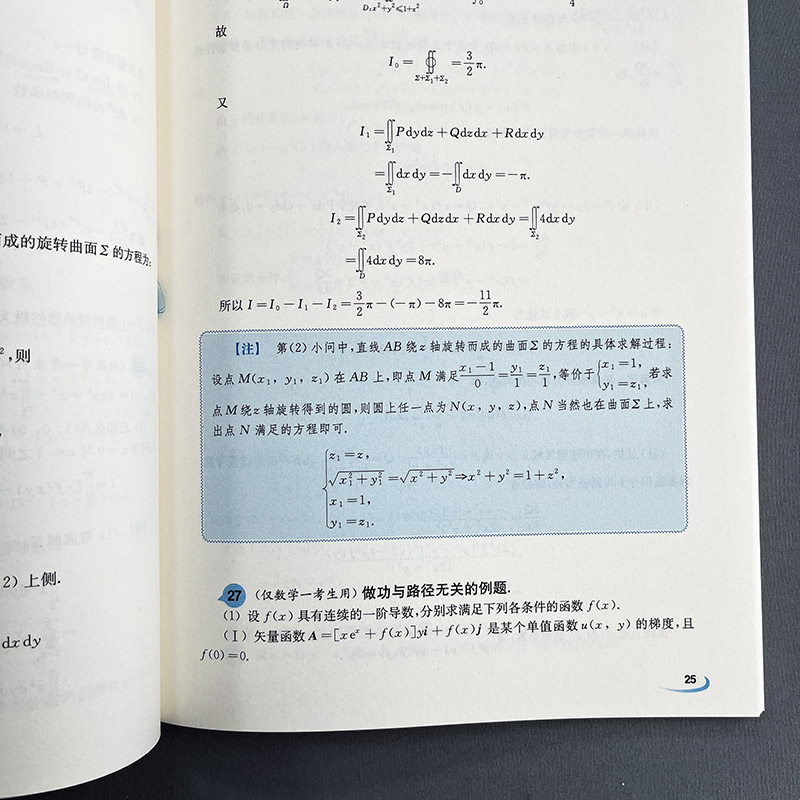 而成的旋转曲面Σ的方程为:
,则
2) 上侧.
dxdy
Ω D:x²+y²≤1+z² 0 4
故
I₀=∯_{Σ+Σ₁+Σ₂}=3/2 π.
又
I₁=∬_{Σ₁}Pdydz+Qdzdx+Rdxdy
=∬_{Σ₁}dxdy=-∬_{D}dxdy=-π.
I₂=∬_{Σ₂}Pdydz+Qdzdx+Rdxdy=∬_{Σ₂}4dxdy
=∬_{D}4dxdy=8π.
所以 I=I₀-I₁-I₂=3/2 π-(-π)-8π=-11/2 π.
【注】 第(2)小问中,直线AB绕z轴旋转而成的曲面Σ的方程的具体求解过程:
设点M(x₁, y₁, z₁)在AB上,即点M满足 (x₁-1)/0=y₁/1=z₁/1,等价于{x₁=1, y₁=z₁, 若求
点M绕z轴旋转得到的圆,则圆上任一点为N(x, y, z),点N当然也在曲面Σ上,求
出点N满足的方程即可.
z₁=z,
√(x₁²+y₁²)=√(x²+y²)⇒x²+y²=1+z²,
x₁=1,
y₁=z₁.
27 (仅数学一考生用)做功与路径无关的例题.
(1) 设f(x)具有连续的一阶导数,分别求满足下列各条件的函数f(x).
(Ⅰ) 矢量函数A=[xeˣ+f(x)]yi+f(x)j是某个单值函数u(x, y)的梯度,且
f(0)=0.
25